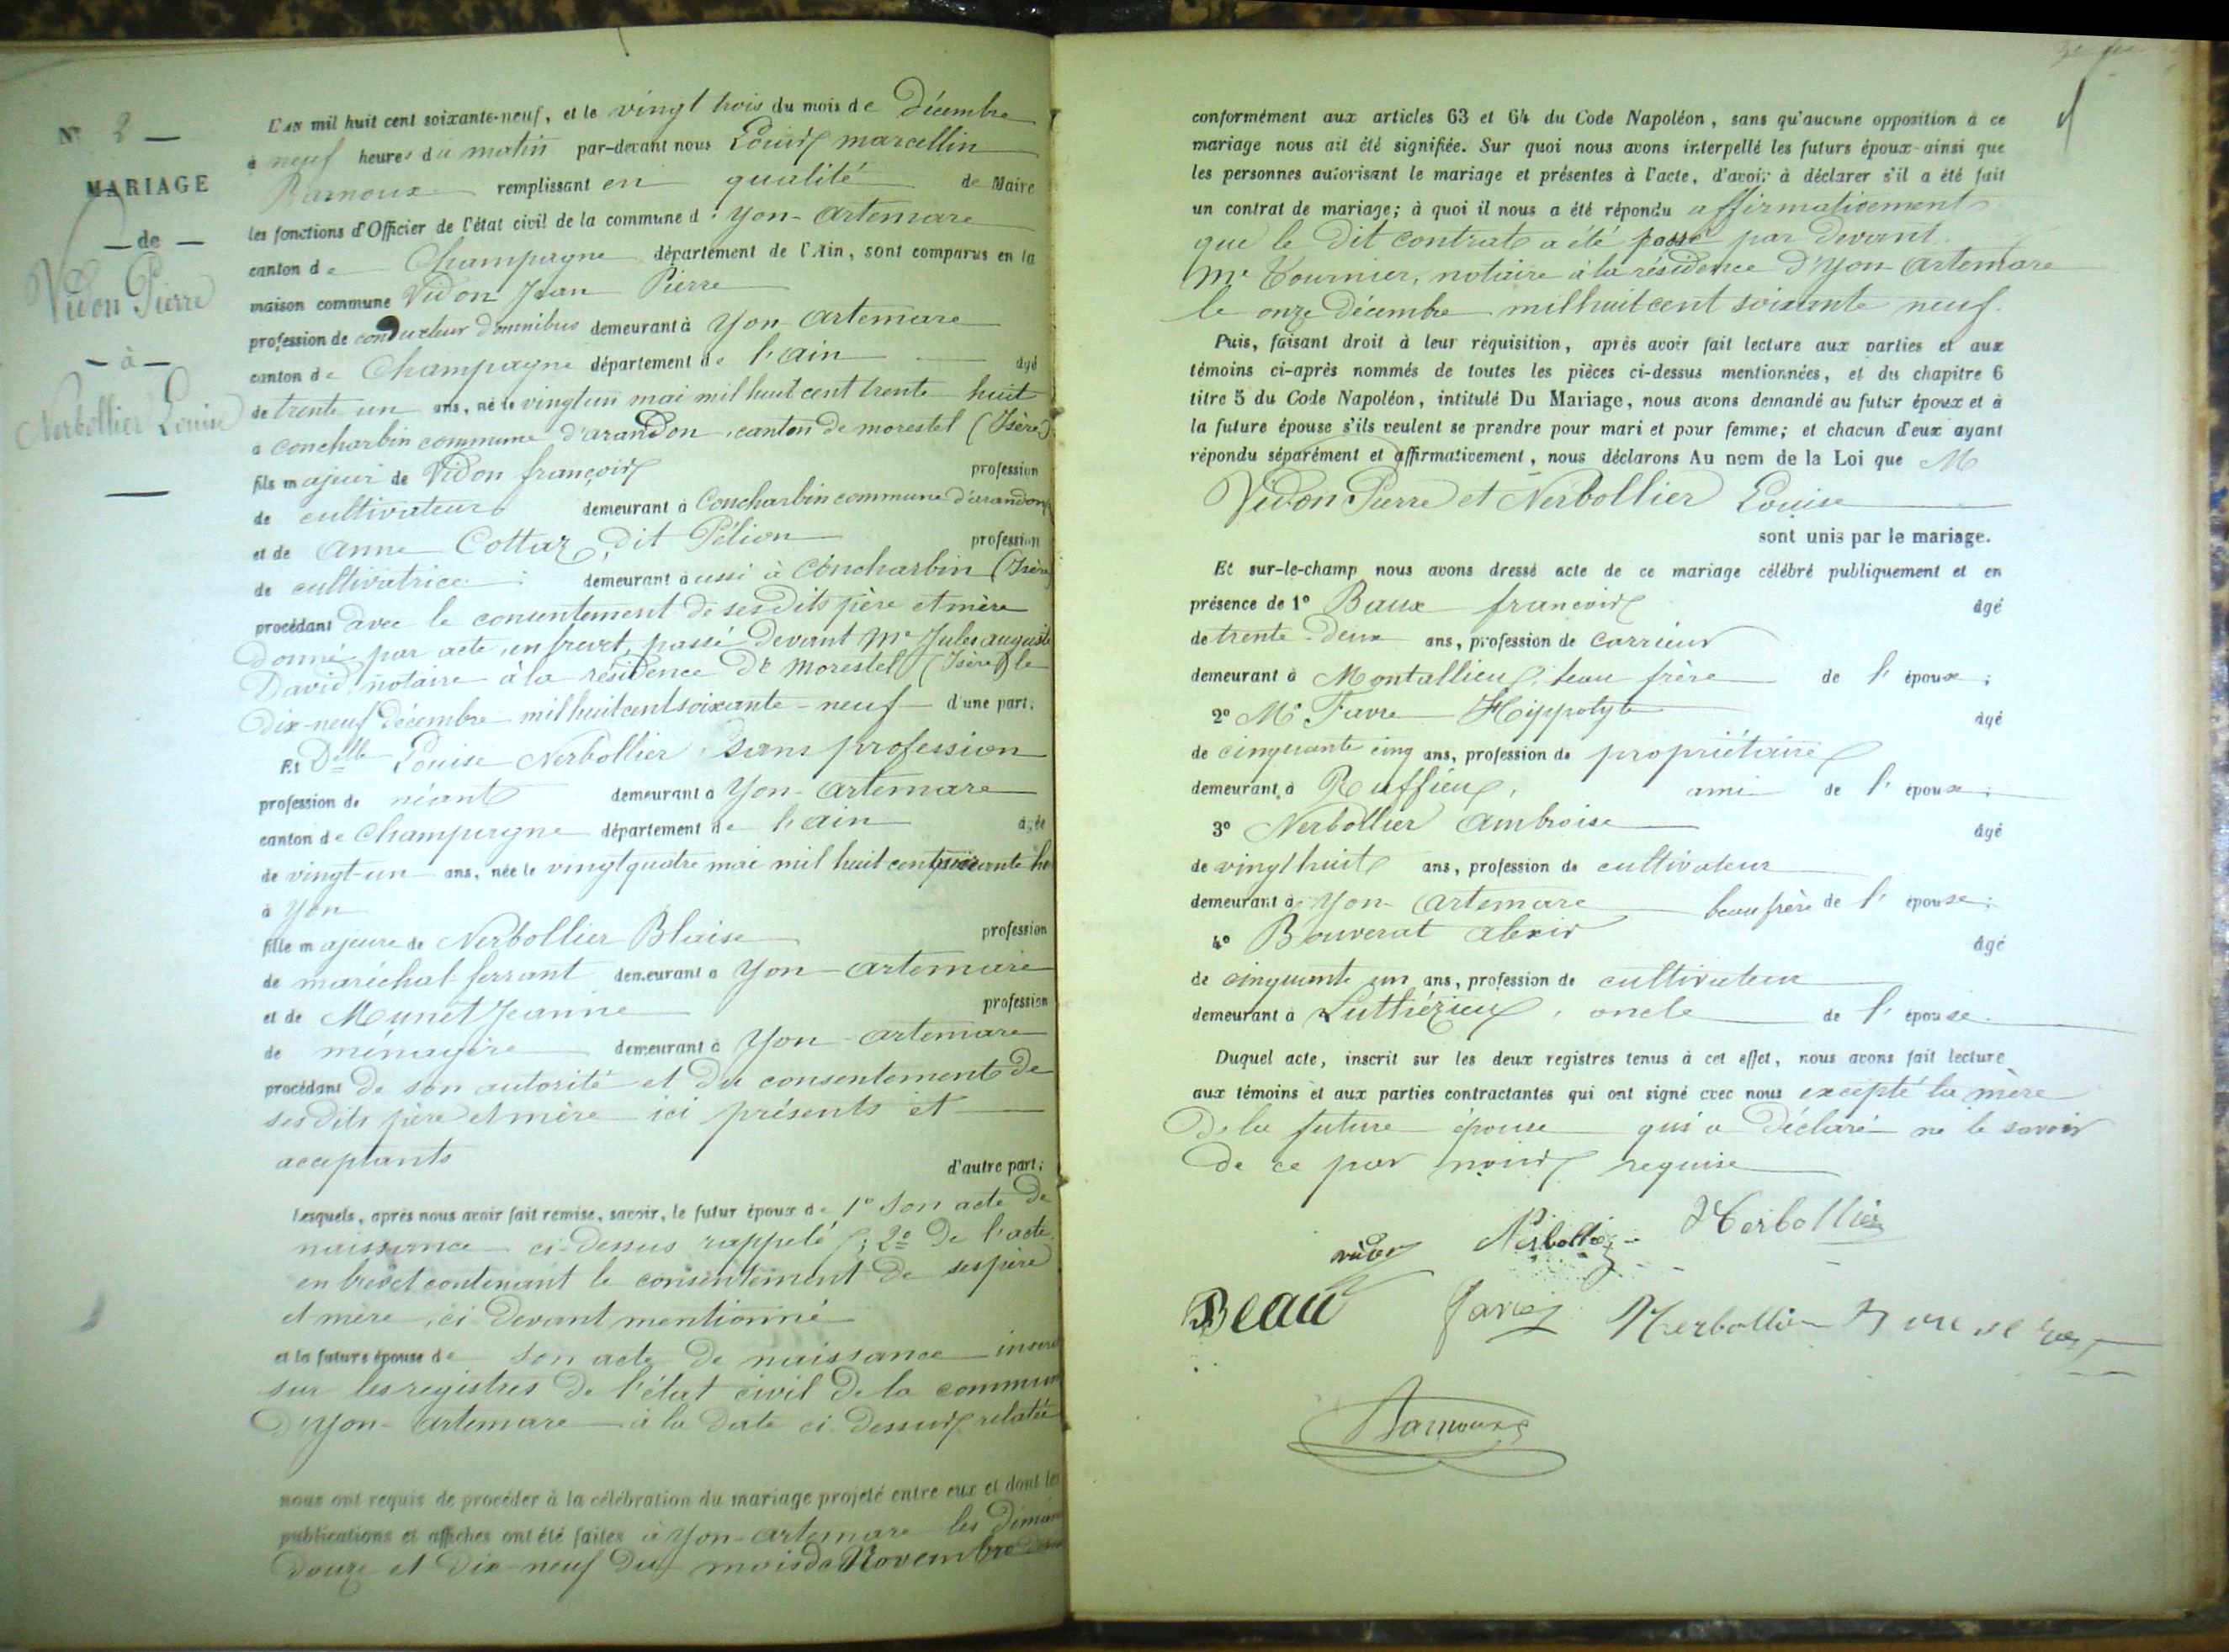 N° 2 —
MARIAGE
— de —
Vidon Pierre
— à —
Nerbollier Louise
L'AN mil huit cent soixante-neuf, et le vingt trois du mois de Décembre
à neuf heures du matin par-devant nous Louis marcellin
remplissant en qualité de Maire
les fonctions d'Officier de l'état civil de la commune d' Yon-Artemare
canton de Champagne département de l'Ain, sont comparus en la
maison commune Vidon Jean Pierre
profession de conducteur d'omnibus demeurant à Yon-Artemare
canton de Champagne département de l'ain âgé
de trente un ans, né le vingt un mai mil huit cent trente huit
a concharbin commune d'arandon, canton de morestel (Isère)
fils majeur de Vidon françois profession
de cultivateur demeurant à Concharbin commune d'arandon
et de Anne Cottaz dit Pélion profession
de cultivatrice demeurant aussi à Concharbin (Isère)
procédant avec le consentement de ses dits père et mère
Donné par acte, en brevet, passé Devant Me Jules auguste
David notaire à la résidence De Morestel (Isère) le
Dix-neuf Décembre mil huit cent soixante-neuf d'une part.
Et Delle Louise Nerbollier sans profession
profession de néant demeurant à Yon-Artemare
canton de Champagne département de l'ain âgée
de vingt-un ans, née le vingt quatre mai mil huit cent
à Yon
fille majeure de Nerbollier Blaise profession
de maréchal-ferrant demeurant à Yon-artemare
et de Munet Jeanne profession
de ménagère demeurant à Yon-artemare
procédant de son autorité et du consentement de
ses dits père et mère ici présents et
acceptants d'autre part;
Lesquels, après nous avoir fait remise, savoir, le futur époux de 1° Son acte De
naissance ci-Dessus rappelé; 2° De l'acte
en brevet contenant le consentement De ses père
et mère, ci Devant mentionné
et la future épouse de son acte De naissance inseré
sur les registres De l'état civil De la commune
D'Yon-Artemare à la Date ci-Dessus relatée
nous ont requis de procéder à la célébration du mariage projeté entre eux et dont les
publications et affiches ont été faites à Yon-Artemare les Diman
Douze et Dix-neuf Du mois de Novembre
conformément aux articles 63 et 64 du Code Napoléon, sans qu'aucune opposition à ce
mariage nous ait été signifiée. Sur quoi nous avons interpellé les futurs époux ainsi que
les personnes autorisant le mariage et présentes à l'acte, d'avoir à déclarer s'il a été fait
un contrat de mariage; à quoi il nous a été répondu affirmativement
que le Dit contrat a été passé par Devant
Me Tournier, notaire à la résidence D'Yon-Artemare
le onze Décembre mil huit cent soixante neuf.
Puis, faisant droit à leur réquisition, après avoir fait lecture aux parties et aux
témoins ci-après nommés de toutes les pièces ci-dessus mentionnées, et du chapitre 6
titre 5 du Code Napoléon, intitulé Du Mariage, nous avons demandé au futur époux et à
la future épouse s'ils veulent se prendre pour mari et pour femme; et chacun d'eux ayant
répondu séparément et affirmativement, nous déclarons Au nom de la Loi que M
Vidon Pierre et Nerbollier Louise
sont unis par le mariage.
Et sur-le-champ nous avons dressé acte de ce mariage célébré publiquement et en
présence de 1° Baux françois âgé
de trente-Deux ans, profession de carrieur
demeurant à Montallieu, beau frère de l' époux;
2° Mr Favre Hippolyte âgé
de cinquante cinq ans, profession de propriétaire
demeurant à Ruffieux, ami de l' épouse;
3° Nerbollier Ambroise âgé
de vingt huit ans, profession de cultivateur
demeurant à Yon-Artemare beau frère de l' épouse;
4° Bouverat alexis âgé
de cinquante un ans, profession de cultivateur
demeurant à Luthézieux, oncle de l' épouse.
Duquel acte, inscrit sur les deux registres tenus à cet effet, nous avons fait lecture
aux témoins et aux parties contractantes qui ont signé avec nous excepté la mère
De la future épouse qui a Déclaré ne le savoir
De ce par nous requise
vidon Nerbollier Nerbollier
Beau Nerbollier